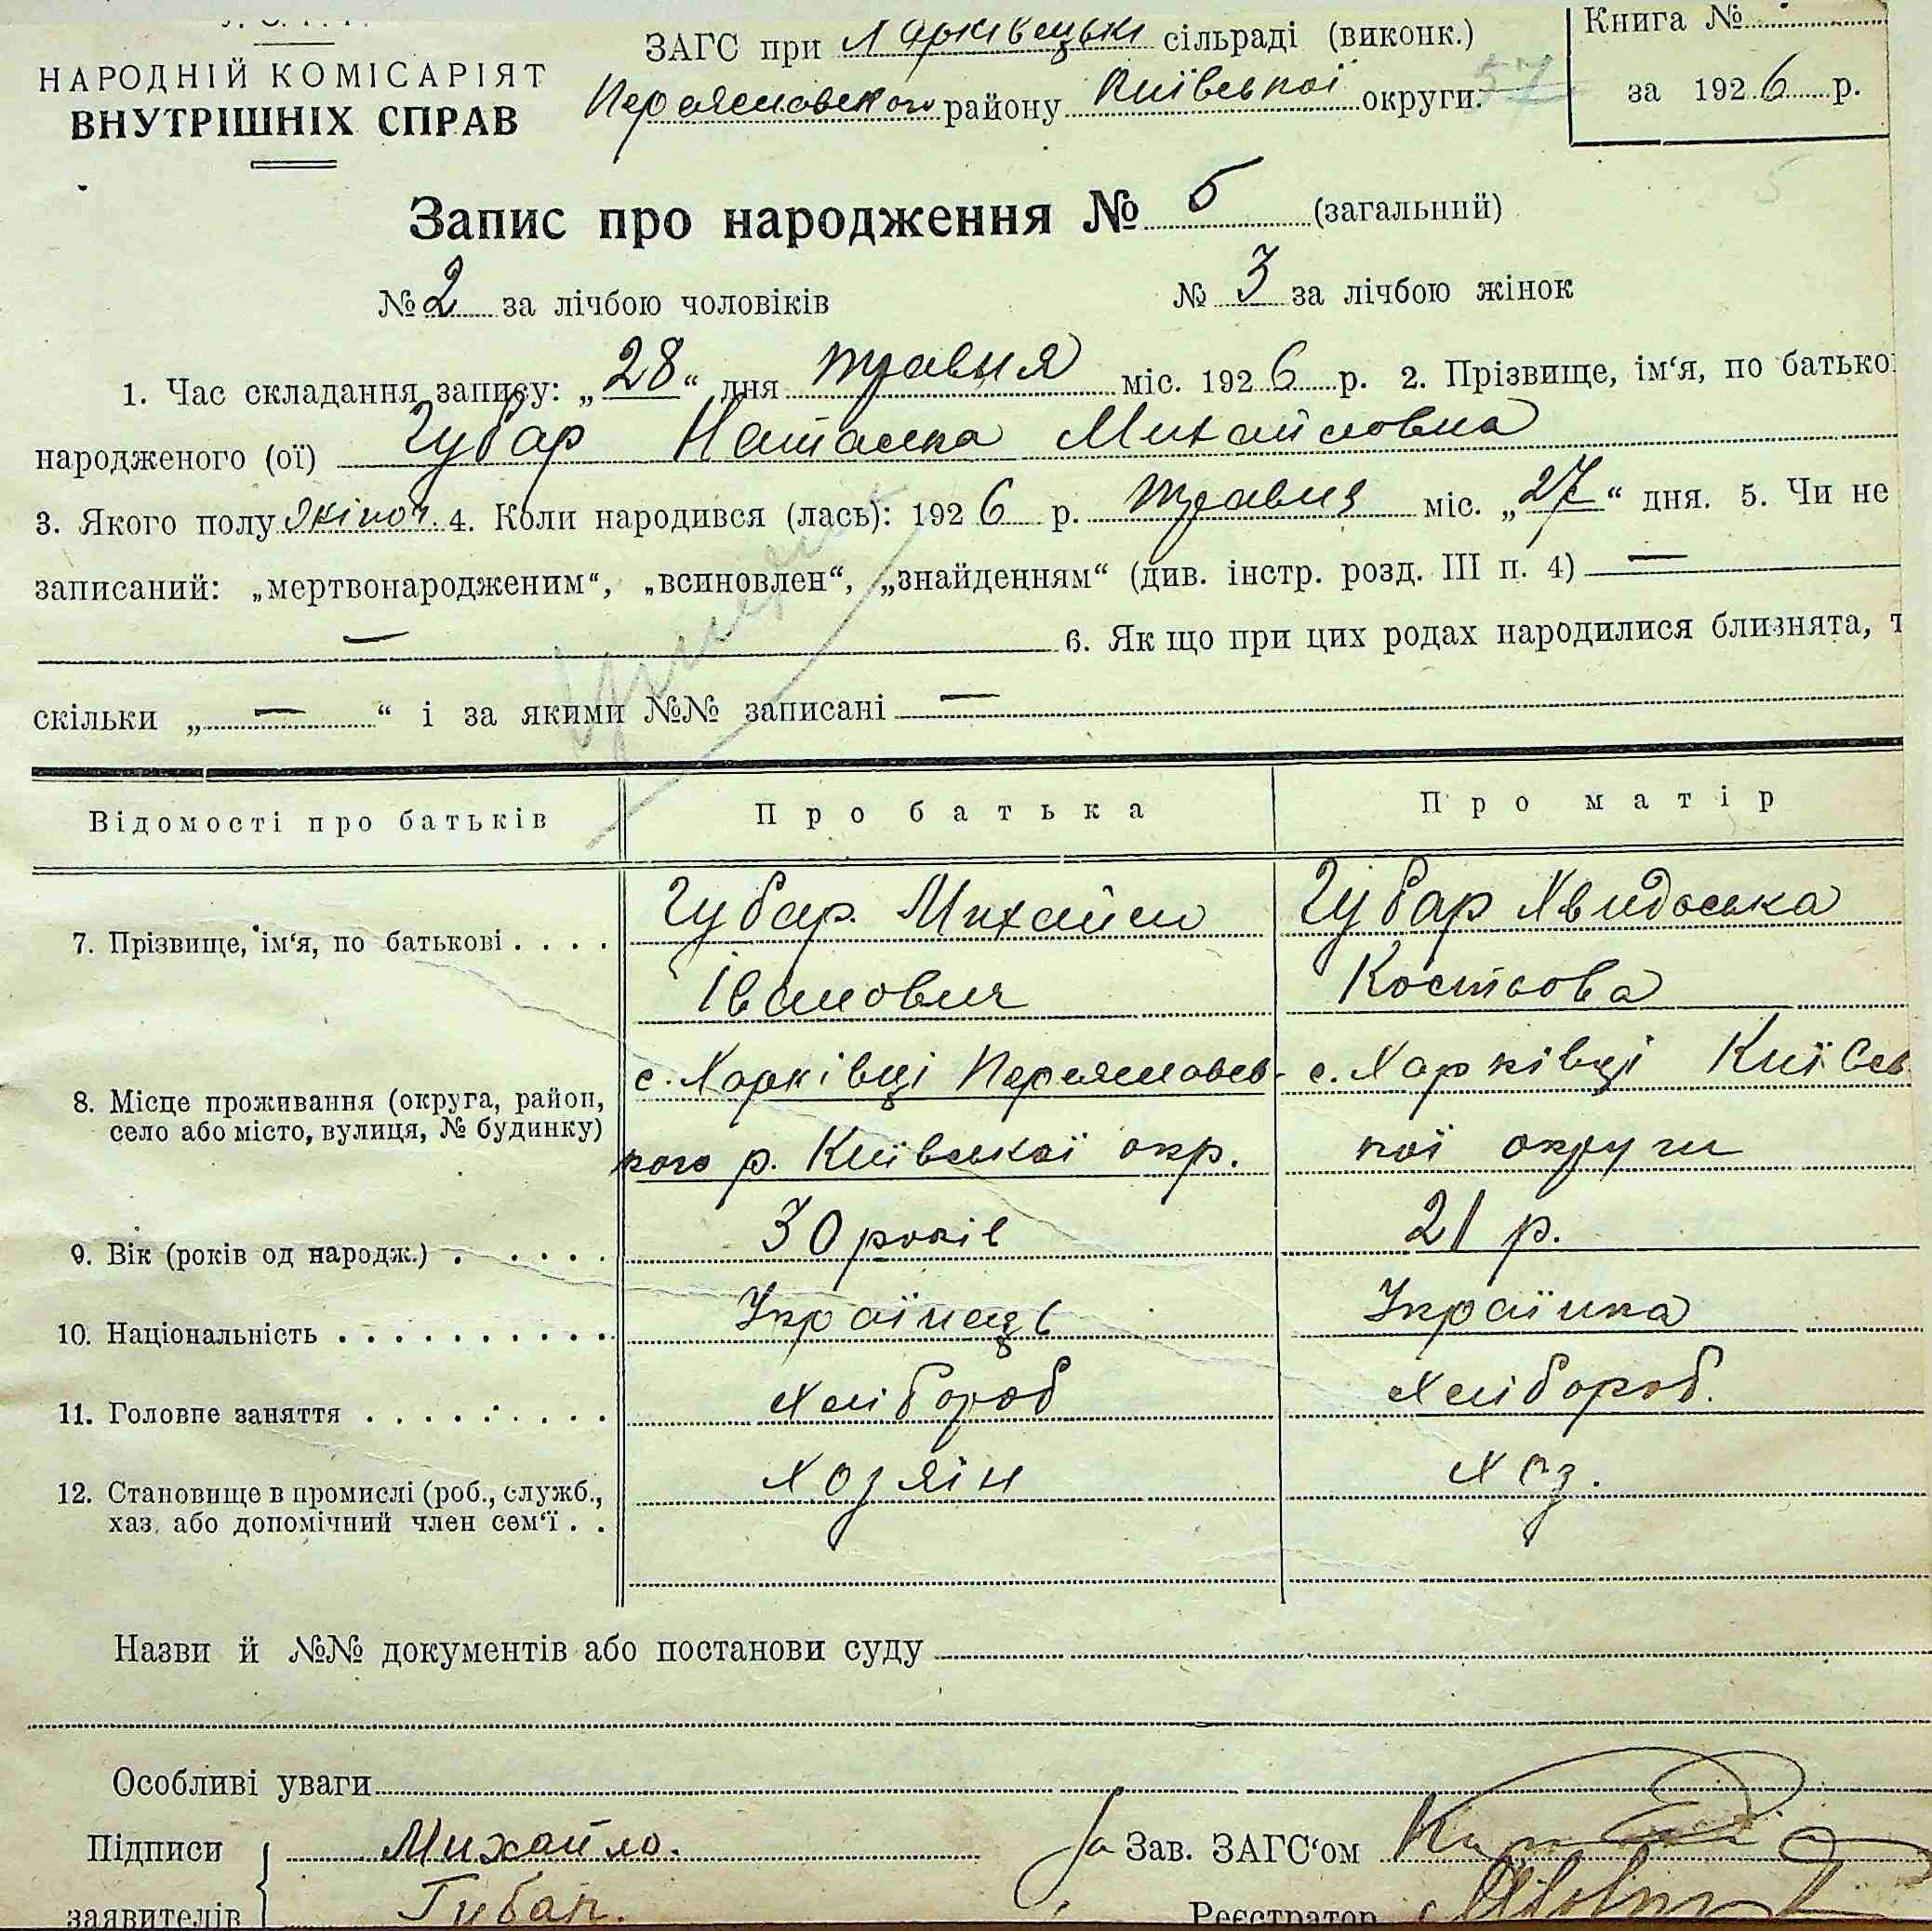 НАРОДНІЙ КОМІСАРІЯТ
ВНУТРІШНІХ СПРАВ
ЗАГС при Харківецькі сільраді (виконк.)
Переяславского району Київської округи. 57
Книга №
за 1926 р.
Запис про народження № 5 (загальний)
5
№ 2 за лічбою чоловіків № 3 за лічбою жінок
1. Час складання запису: „28“ дня травня міс. 1926 р. 2. Прізвище, ім‘я, по батько
народженого (ої) Губар Наталка Михайловна
3. Якого полу жіноч. 4. Коли народився (лась): 1926 р. травня міс. „27“ дня. 5. Чи не
записаний: „мертвонародженим“, „всиновлен“, „знайденням“ (див. інстр. розд. III п. 4) —
— 6. Як що при цих родах народилися близнята, т
скільки „ — “ і за якими №№ записані —
Відомості про батьків Про батька Про матір
7. Прізвище, ім‘я, по батькові . . . . Губар Михайло Губар Хвидоська
Іванович Костьова
с. Харківці Переяславсь- с. Харківці Київсь
8. Місце проживання (округа, район,
село або місто, вулиця, № будинку)
кого р. Київської окр. кої округи
9. Вік (років од народж.) . . . . . 30 років 21 р.
10. Національність . . . . . . . . . . Українець Українка
11. Головне заняття . . . . . . . . . Хлібороб Хлібороб.
12. Становище в промислі (роб., служб., Хозяін Хоз.
хаз. або допомічний член сем‘ї . .
Назви й №№ документів або постанови суду
Особливі уваги
Підписи Михайло. За Зав. ЗАГС‘ом
заявителів Губар. Реєстратор